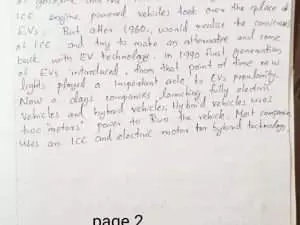 of gasoline and
ICC engine powered vehicles took over the place of
EVs. But after 1960, world realise the
of ICC and try to make an alternative and come
back with EV technology. In 1990 final generation
of EVs introduced, from that point of time new
lights played a important role to EVs popularity.
Now a days companies launching fully electric
vehicles and hybrid vehicles. Hybrid vehicles uses
two "motors" power to Run the vehicle. Most companies
uses an ICC and electric motor for hybrid technology.
page 2